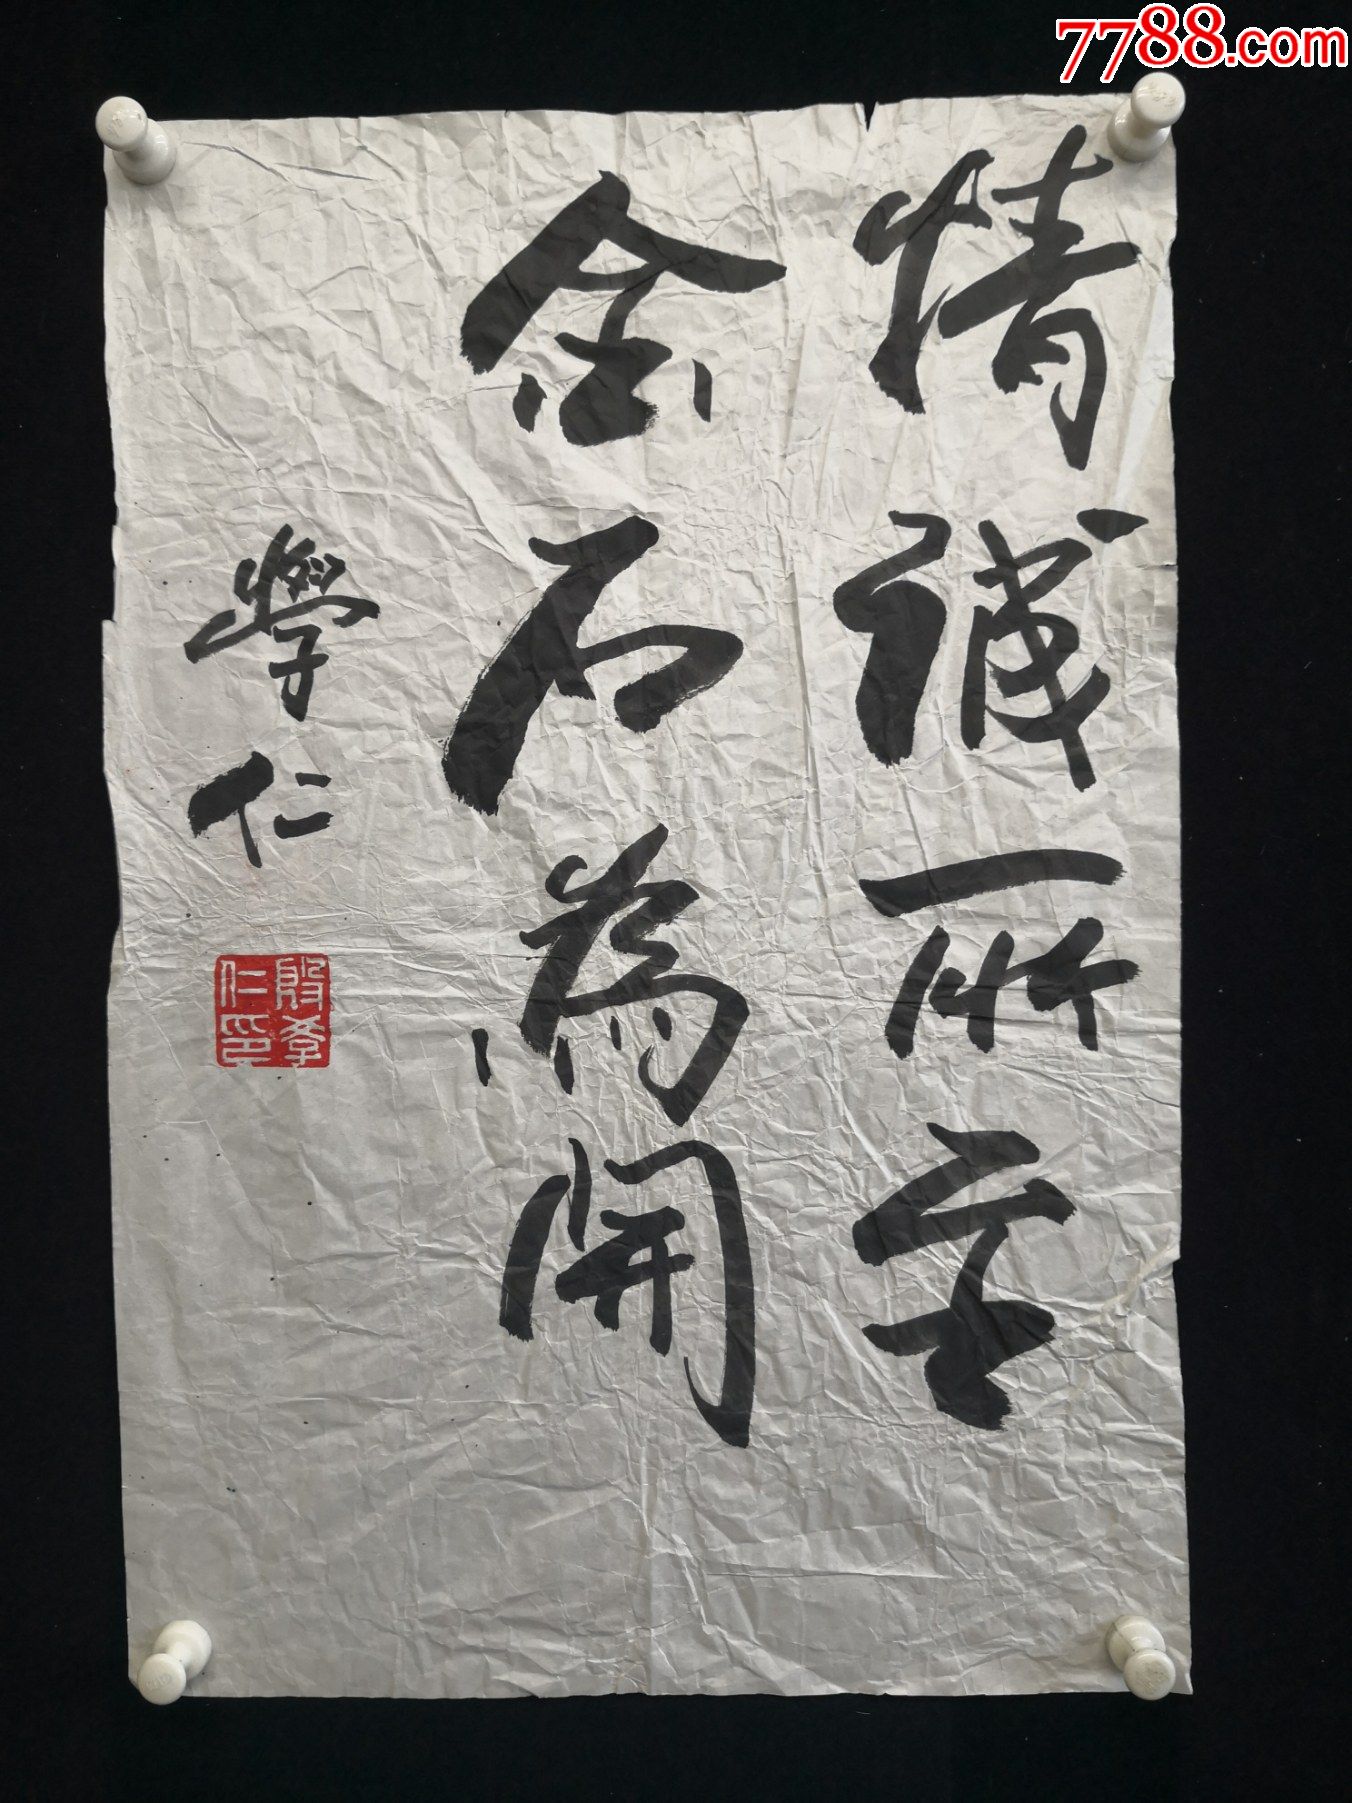 7788.com
精誠所至
金石為開
學仁
殷學
仁印